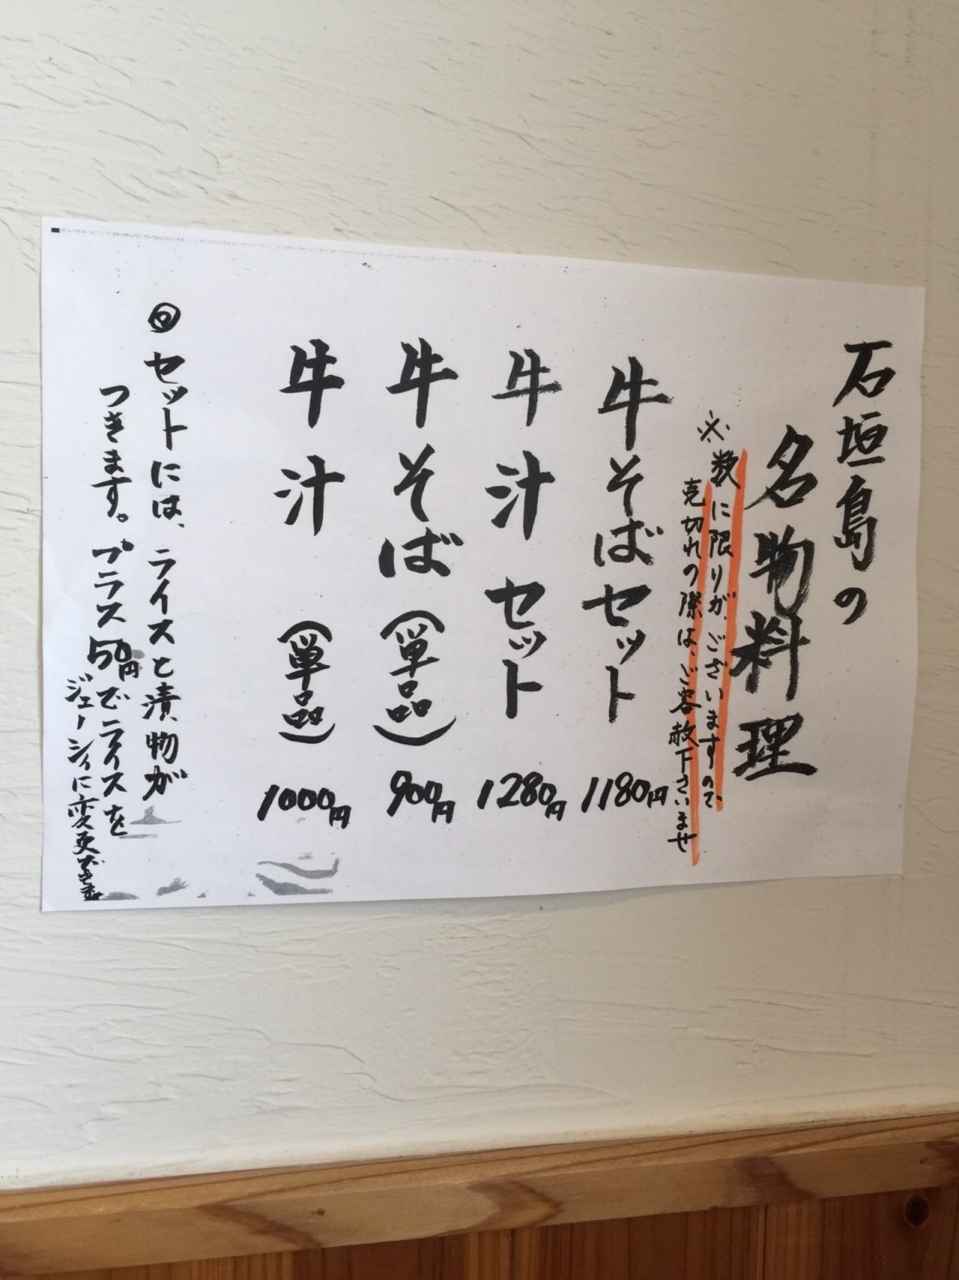 石垣島の
名物料理
※数に限りがございますので、
売切れの際は、ご容赦下さいませ
牛そばセット 1180円
牛汁セット 1280円
牛そば(単品) 900円
牛汁(単品) 1000円
◎セットには、ライスと漬物が
つきます。プラス50円でライスを
ジューシィに変更できます